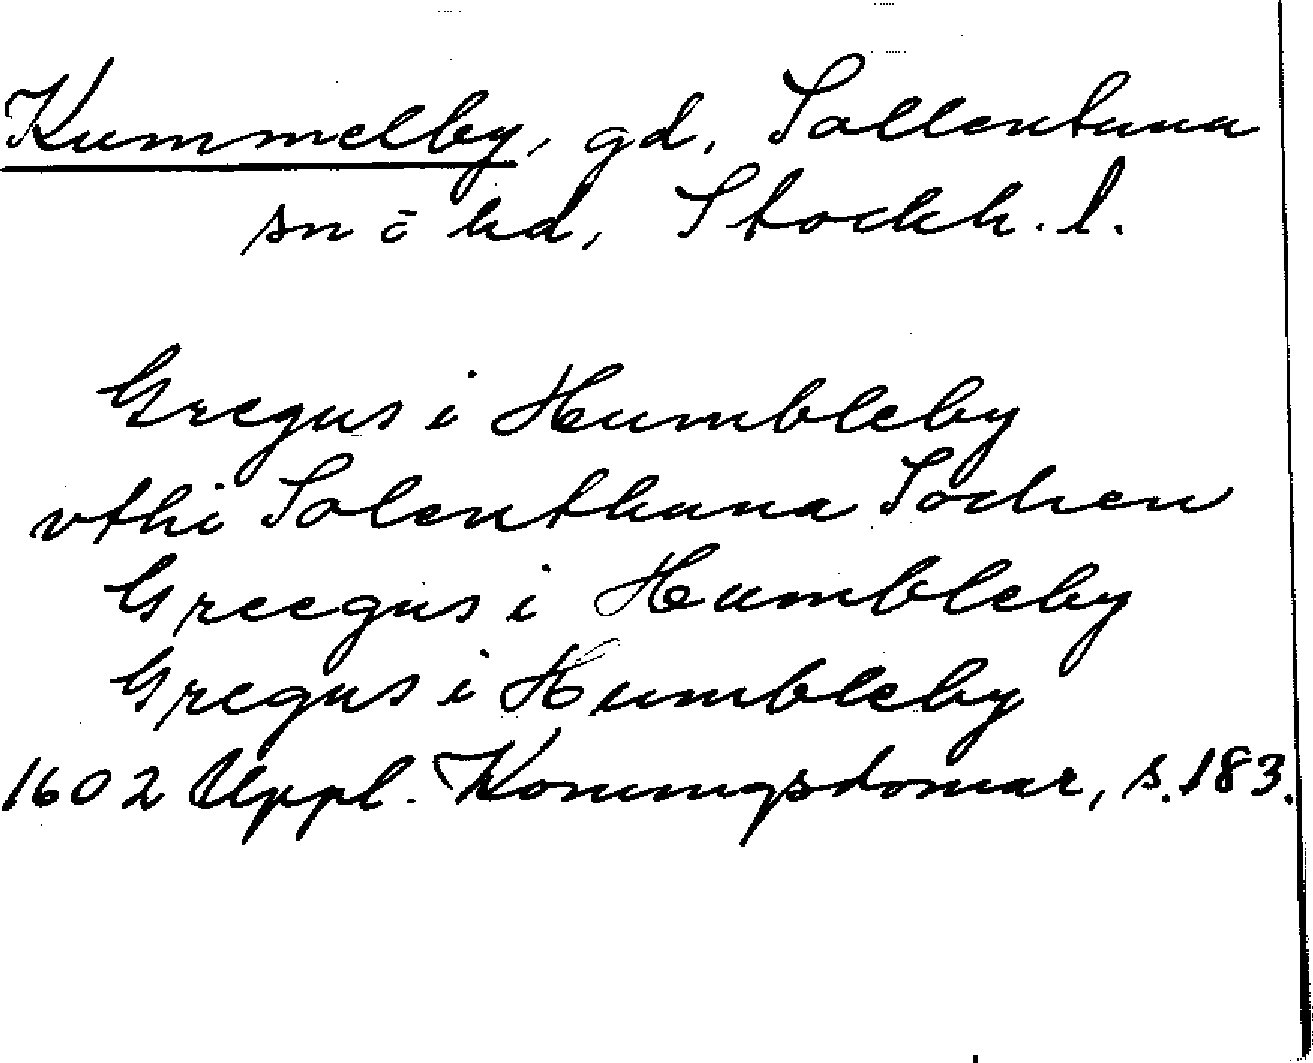 Kummelby, gd, Sollentuna
sn o hd, Stockh. l.
Gregus i Humbleby
vthi Solenthuna Sochen
Greegus i Humbleby
Gregus i Humbleby
1602 Uppl. Konungsdomar, s. 183.